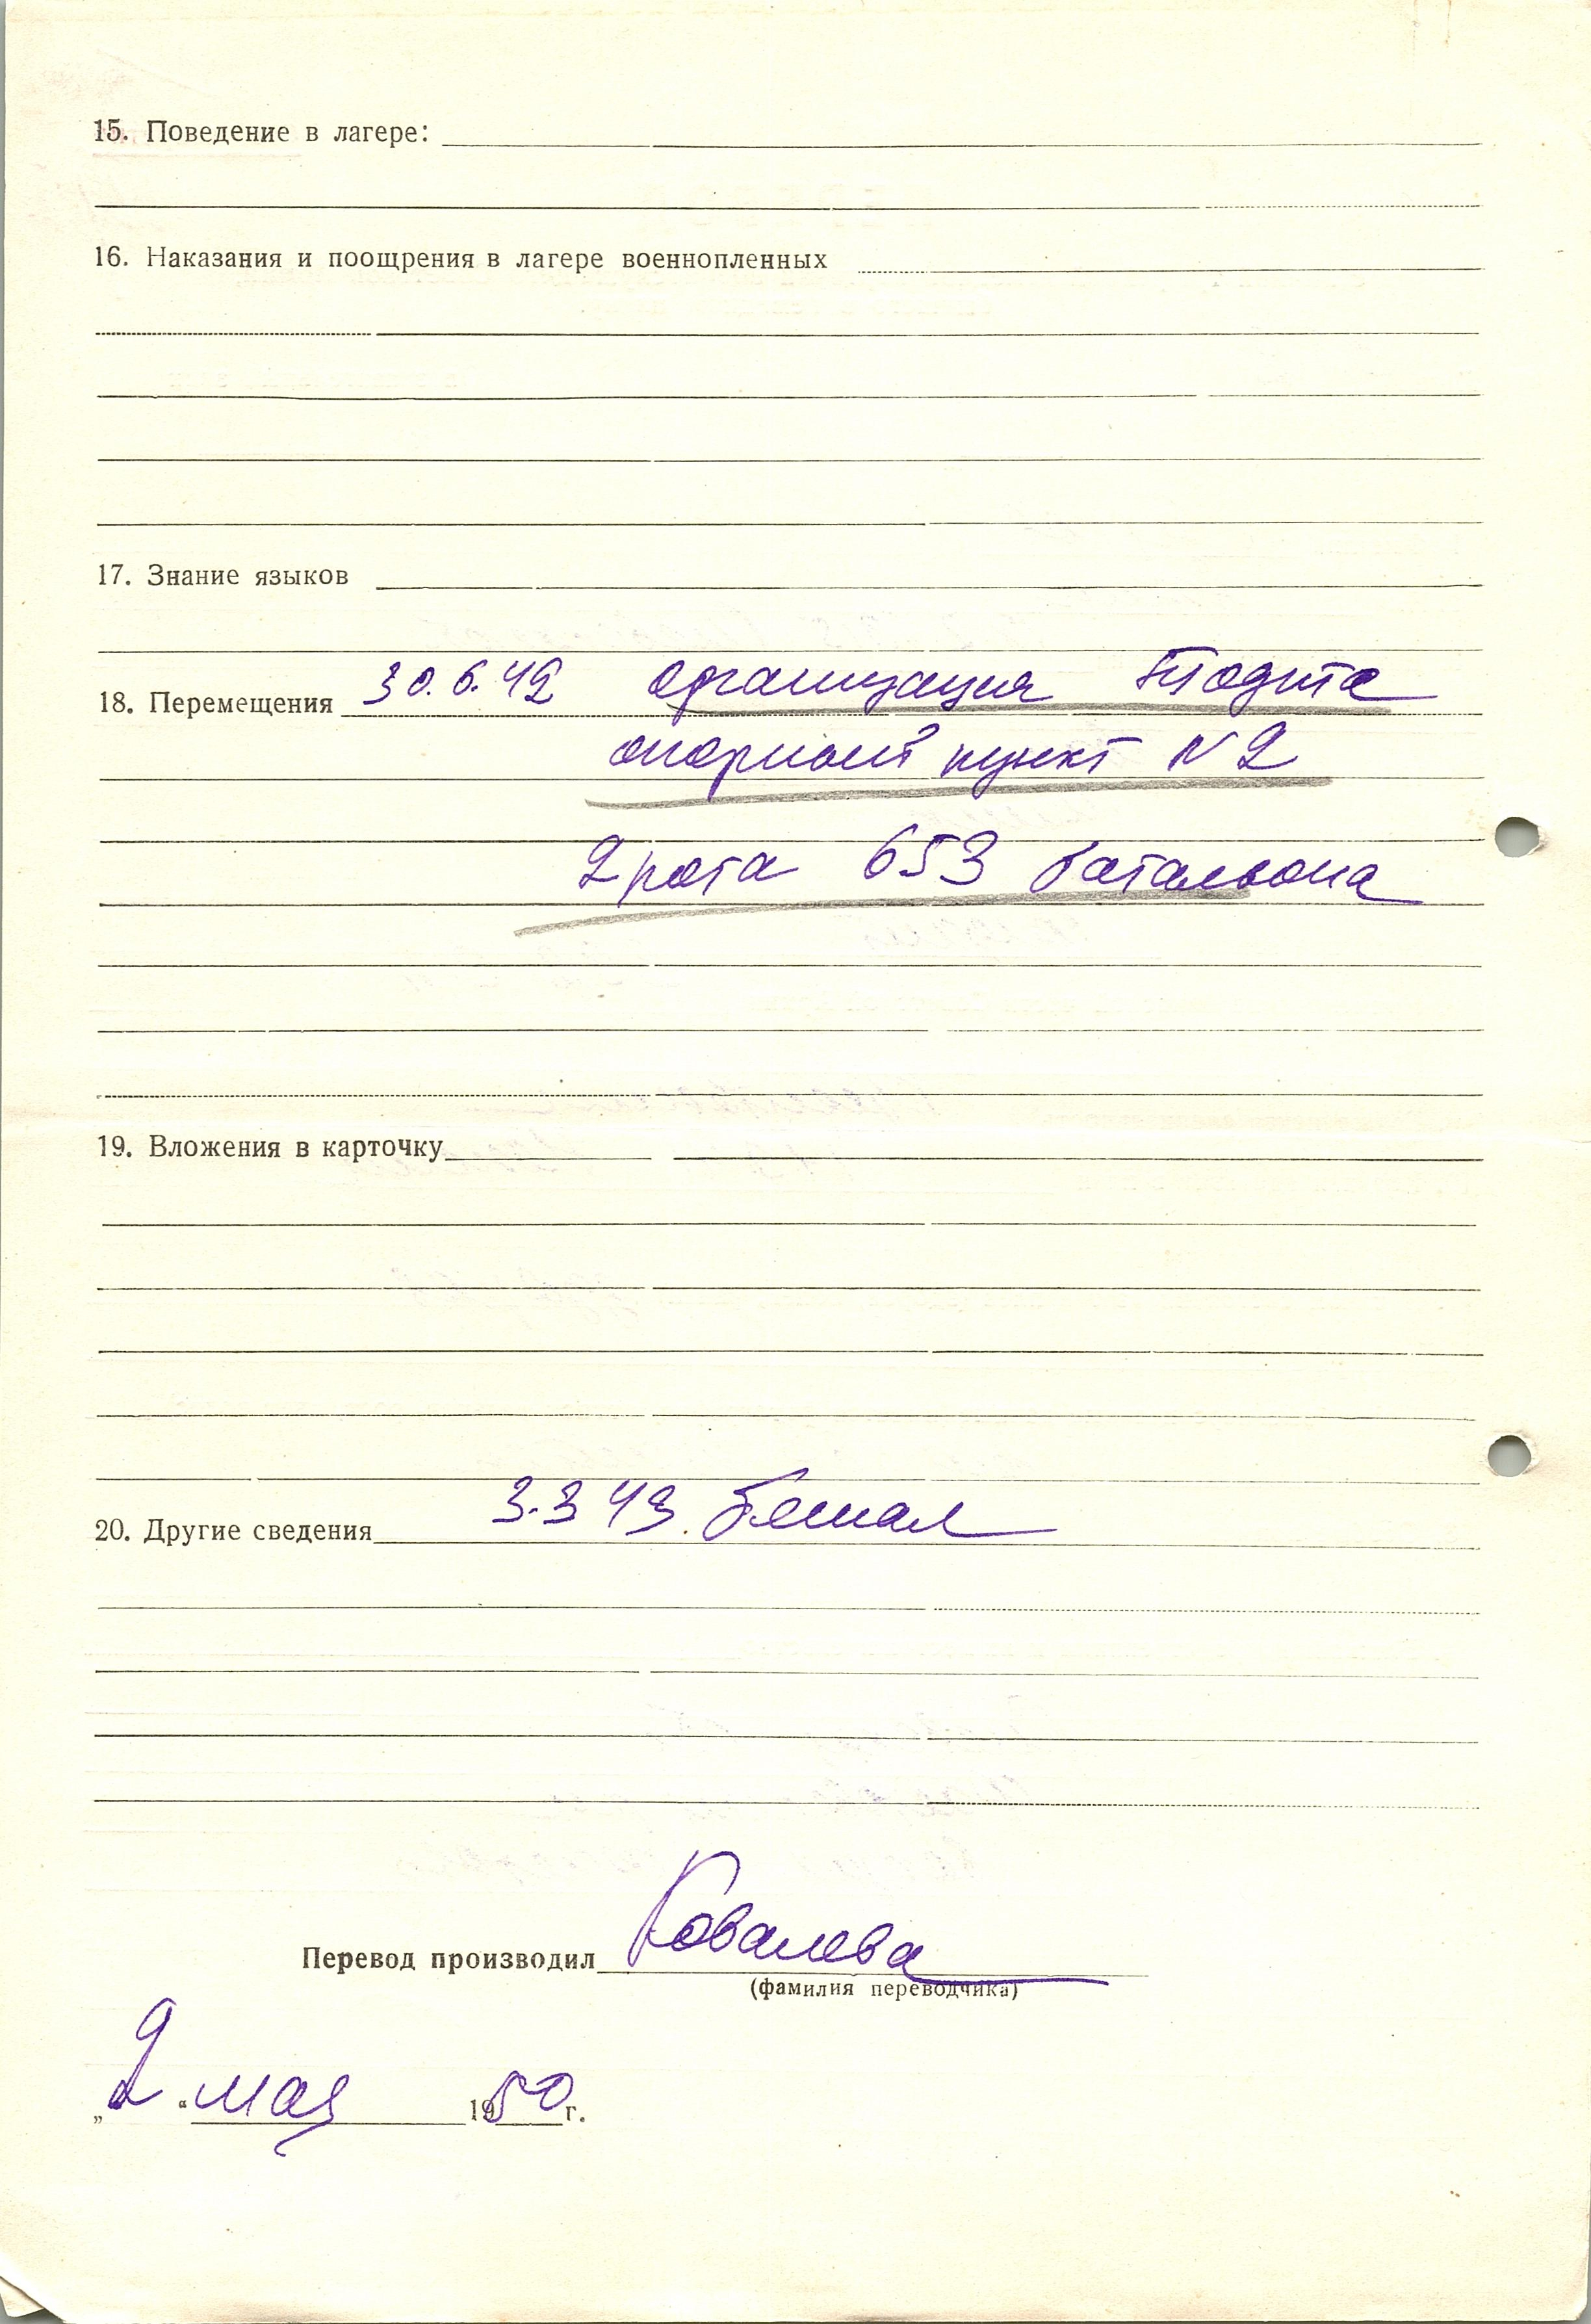 15. Поведение в лагере:
16. Наказания и поощрения в лагере военнопленных
17. Знание языков
18. Перемещения 30.6.42 организация Тодта
опорный пункт N 2
2 рота 653 батальона
19. Вложения в карточку
20. Другие сведения 3.3 43. бежал
Перевод производил Ковалева
(фамилия переводчика)
„2“ мая 1950 г.